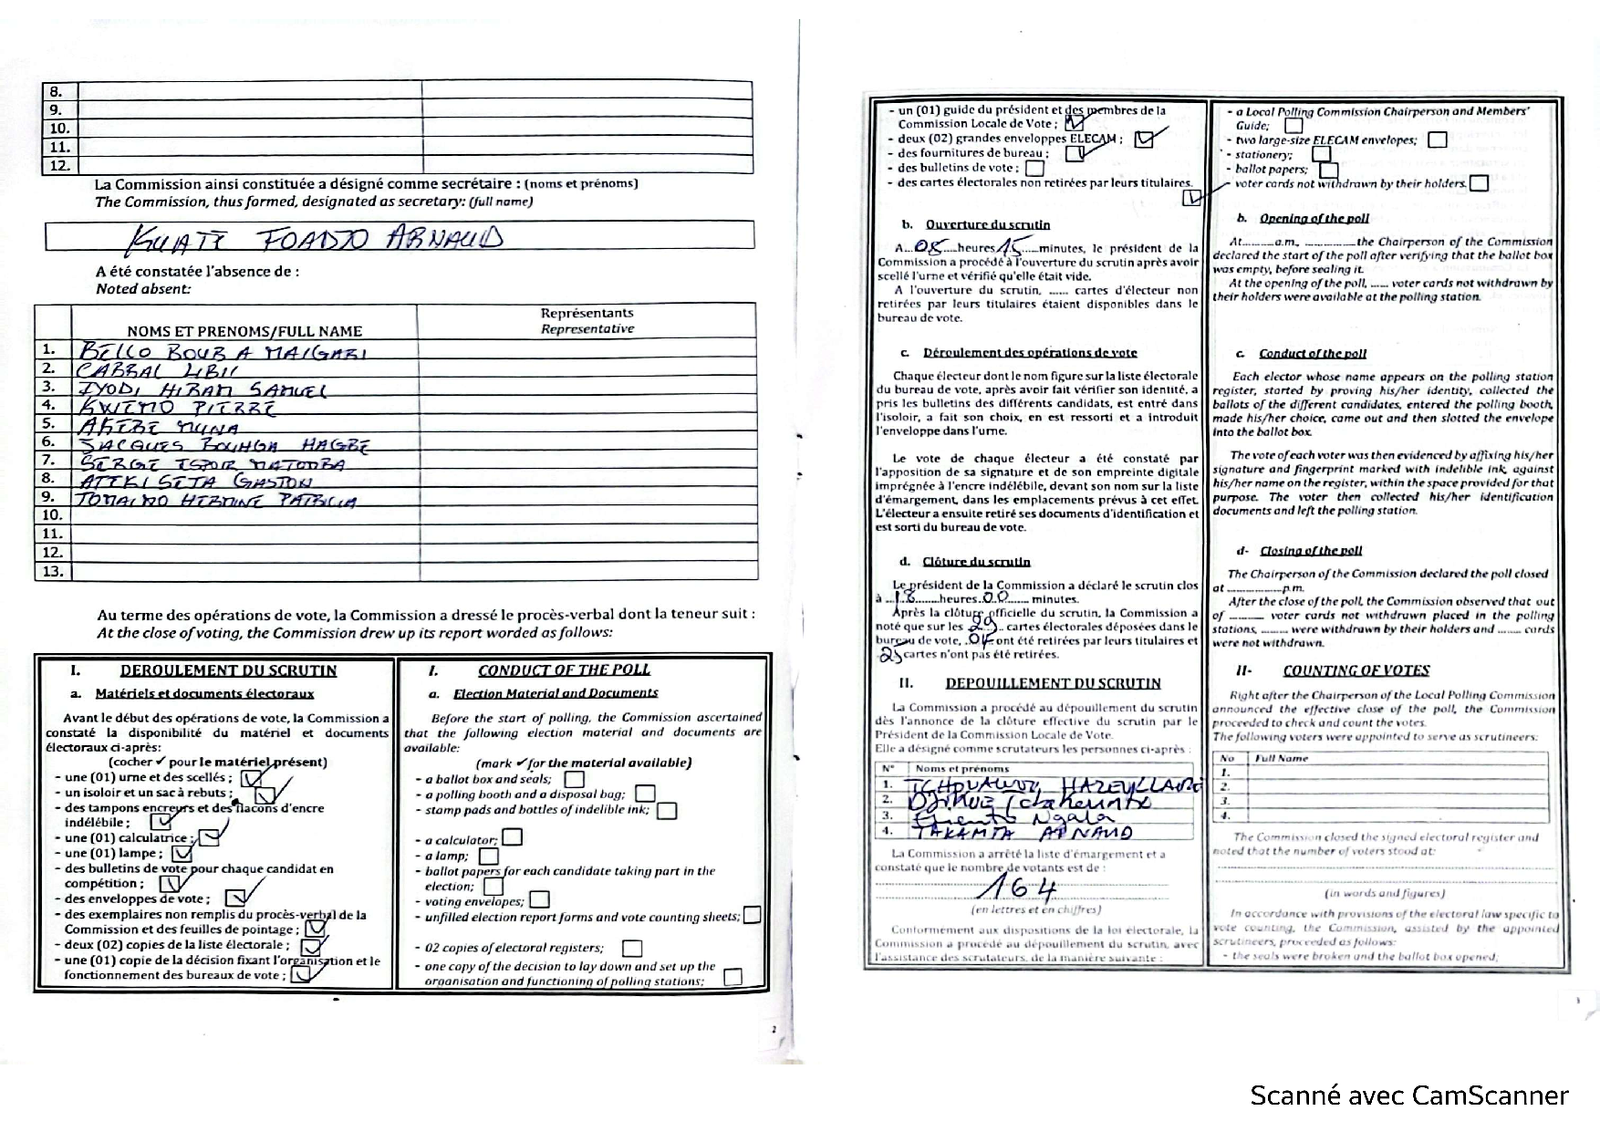 8.
9.
10.
11.
12.
La Commission ainsi constituée a désigné comme secrétaire : (noms et prénoms)
The Commission, thus formed, designated as secretary: (full name)
KUATE FOADJO ARNAUD
A été constatée l'absence de :
Noted absent:
NOMS ET PRENOMS/FULL NAME
Représentants
Representative
1. BELLO BOUBA MAIGARI
2. CABRAL LIBII
3. IYODI HIRAM SAMUEL
4. KWEMO PIERRE
5. AKERE MUNA
6. JACQUES BOUHGA HAGBE
7. SERGE ESPOIR MATOMBA
8. ATEKI SETA GASTON
9. TOMAINO HERMINE PATRICIA
10.
11.
12.
13.
Au terme des opérations de vote, la Commission a dressé le procès-verbal dont la teneur suit :
At the close of voting, the Commission drew up its report worded as follows:
I. DEROULEMENT DU SCRUTIN
a. Matériels et documents électoraux
Avant le début des opérations de vote, la Commission a
constaté la disponibilité du matériel et documents
électoraux ci-après:
(cocher ✓ pour le matériel présent)
- une (01) urne et des scellés ;
- un isoloir et un sac à rebuts ;
- des tampons encreurs et des flacons d'encre
indélébile ;
- une (01) calculatrice ;
- une (01) lampe ;
- des bulletins de vote pour chaque candidat en
compétition ;
- des enveloppes de vote ;
- des exemplaires non remplis du procès-verbal de la
Commission et des feuilles de pointage ;
- deux (02) copies de la liste électorale ;
- une (01) copie de la décision fixant l'organisation et le
fonctionnement des bureaux de vote ;
I. CONDUCT OF THE POLL
a. Election Material and Documents
Before the start of polling, the Commission ascertained
that the following election material and documents are
available:
(mark ✓ for the material available)
- a ballot box and seals;
- a polling booth and a disposal bag;
- stamp pads and bottles of indelible ink;
- a calculator;
- a lamp;
- ballot papers for each candidate taking part in the
election;
- voting envelopes;
- unfilled election report forms and vote counting sheets;
- 02 copies of electoral registers;
- one copy of the decision to lay down and set up the
organisation and functioning of polling stations;
2
- un (01) guide du président et des membres de la
Commission Locale de Vote ;
- deux (02) grandes enveloppes ELECAM ;
- des fournitures de bureau ;
- des bulletins de vote ;
- des cartes électorales non retirées par leurs titulaires.
b. Ouverture du scrutin
A...08....heures 15....minutes, le président de la
Commission a procédé à l'ouverture du scrutin après avoir
scellé l'urne et vérifié qu'elle était vide.
A l'ouverture du scrutin, ...... cartes d'électeur non
retirées par leurs titulaires étaient disponibles dans le
bureau de vote.
c. Déroulement des opérations de vote
Chaque électeur dont le nom figure sur la liste électorale
du bureau de vote, après avoir fait vérifier son identité, a
pris les bulletins des différents candidats, est entré dans
l'isoloir, a fait son choix, en est ressorti et a introduit
l'enveloppe dans l'urne.
Le vote de chaque électeur a été constaté par
l'apposition de sa signature et de son empreinte digitale
imprégnée à l'encre indélébile, devant son nom sur la liste
d'émargement, dans les emplacements prévus à cet effet.
L'électeur a ensuite retiré ses documents d'identification et
est sorti du bureau de vote.
d. Clôture du scrutin
Le président de la Commission a déclaré le scrutin clos
à ..18......heures.00..... minutes.
Après la clôture officielle du scrutin, la Commission a
noté que sur les 29.. cartes électorales déposées dans le
bureau de vote, .04 ont été retirées par leurs titulaires et
25 cartes n'ont pas été retirées.
II. DEPOUILLEMENT DU SCRUTIN
La Commission a procédé au dépouillement du scrutin
dès l'annonce de la clôture effective du scrutin par le
Président de la Commission Locale de Vote.
Elle a désigné comme scrutateurs les personnes ci-après :
N° Noms et prénoms
1.
2.
3. Ngala
4. TAKAMTA ARNAUD
La Commission a arrêté la liste d'émargement et a
constaté que le nombre de votants est de :
164
(en lettres et en chiffres)
Conformément aux dispositions de la loi électorale, la
Commission a procédé au dépouillement du scrutin, avec
l'assistance des scrutateurs, de la manière suivante :
- a Local Polling Commission Chairperson and Members'
Guide;
- two large-size ELECAM envelopes;
- stationery;
- ballot papers;
- voter cards not withdrawn by their holders.
b. Opening of the poll
At..........a.m, ..................the Chairperson of the Commission
declared the start of the poll after verifying that the ballot box
was empty, before sealing it.
At the opening of the poll, ...... voter cards not withdrawn by
their holders were available at the polling station.
c. Conduct of the poll
Each elector whose name appears on the polling station
register, started by proving his/her identity, collected the
ballots of the different candidates, entered the polling booth,
made his/her choice, came out and then slotted the envelope
into the ballot box.
The vote of each voter was then evidenced by affixing his/her
signature and fingerprint marked with indelible ink, against
his/her name on the register, within the space provided for that
purpose. The voter then collected his/her identification
documents and left the polling station.
d- Closing of the poll
The Chairperson of the Commission declared the poll closed
at ..................p.m.
After the close of the poll, the Commission observed that out
of .......... voter cards not withdrawn placed in the polling
stations, ......... were withdrawn by their holders and ........ cards
were not withdrawn.
II- COUNTING OF VOTES
Right after the Chairperson of the Local Polling Commission
announced the effective close of the poll, the Commission
proceeded to check and count the votes.
The following voters were appointed to serve as scrutineers:
No Full Name
1.
2.
3.
4.
The Commission closed the signed electoral register and
noted that the number of voters stood at:
(in words and figures)
In accordance with provisions of the electoral law specific to
vote counting, the Commission, assisted by the appointed
scrutineers, proceeded as follows:
- the seals were broken and the ballot box opened;
3
Scanné avec CamScanner